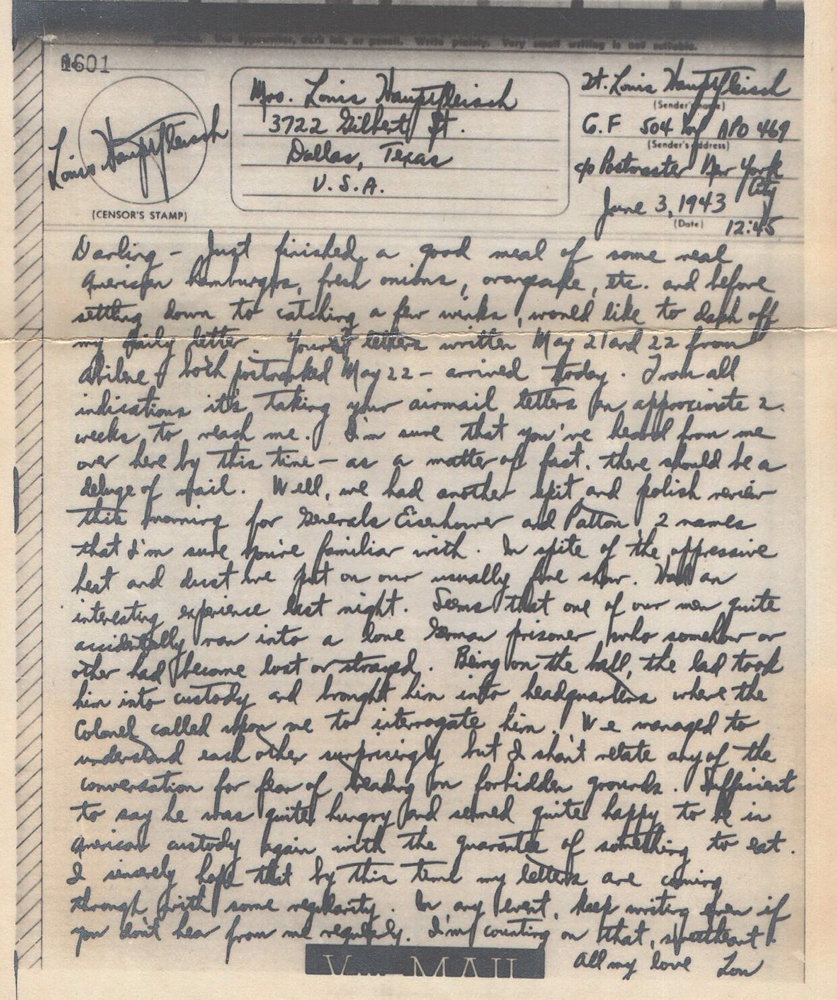 1601
Louis Hauptfleisch
(CENSOR'S STAMP)
Mrs. Louis Hauptfleisch
3722 Gilbert St.
Dallas, Texas
U.S.A.
Lt. Louis Hauptfleisch
(Sender's name)
C.F 504 Inf APO 469
(Sender's address)
c/o Postmaster New York
City
June 3, 1943
(Date)
12:45
Darling - Just finished a good meal of some real
American hamburgers, fresh onions, orangeade, etc. and before
settling down to catching a few winks, would like to dash off
my daily letter. letters written May 21 and 22 from
Abilene, both postmarked May 22 - arrived today. From all
indications it's taking your airmail letters an approximate 2
weeks to reach me. I'm sure that you've heard from me
over here by this time - as a matter of fact, there should be a
deluge of mail. Well, we had another spit and polish review
this morning for Generals Eisenhower and Patton, 2 names
that I'm sure you're familiar with. In spite of the oppressive
heat and dust we put on our usually fine show. Had an
interesting experience last night. Seems that one of our men quite
accidentally ran into a lone German prisoner who somehow or
other had become lost or strayed. Being on the ball, the lad took
him into custody and brought him into headquarters where the
Colonel called upon me to interrogate him. We managed to
understand each other surprisingly but I shan't relate any of the
conversation for fear of treading on forbidden grounds. Sufficient
to say he was quite hungry and seemed quite happy to be in
American custody again with the guarantee of something to eat.
I sincerely hope that by this time my letters are coming
through with some regularity. In any event, keep writing even if
you don't hear from me regularly. I'm counting on that, sweetheart.
All my love Lou
V-MAIL